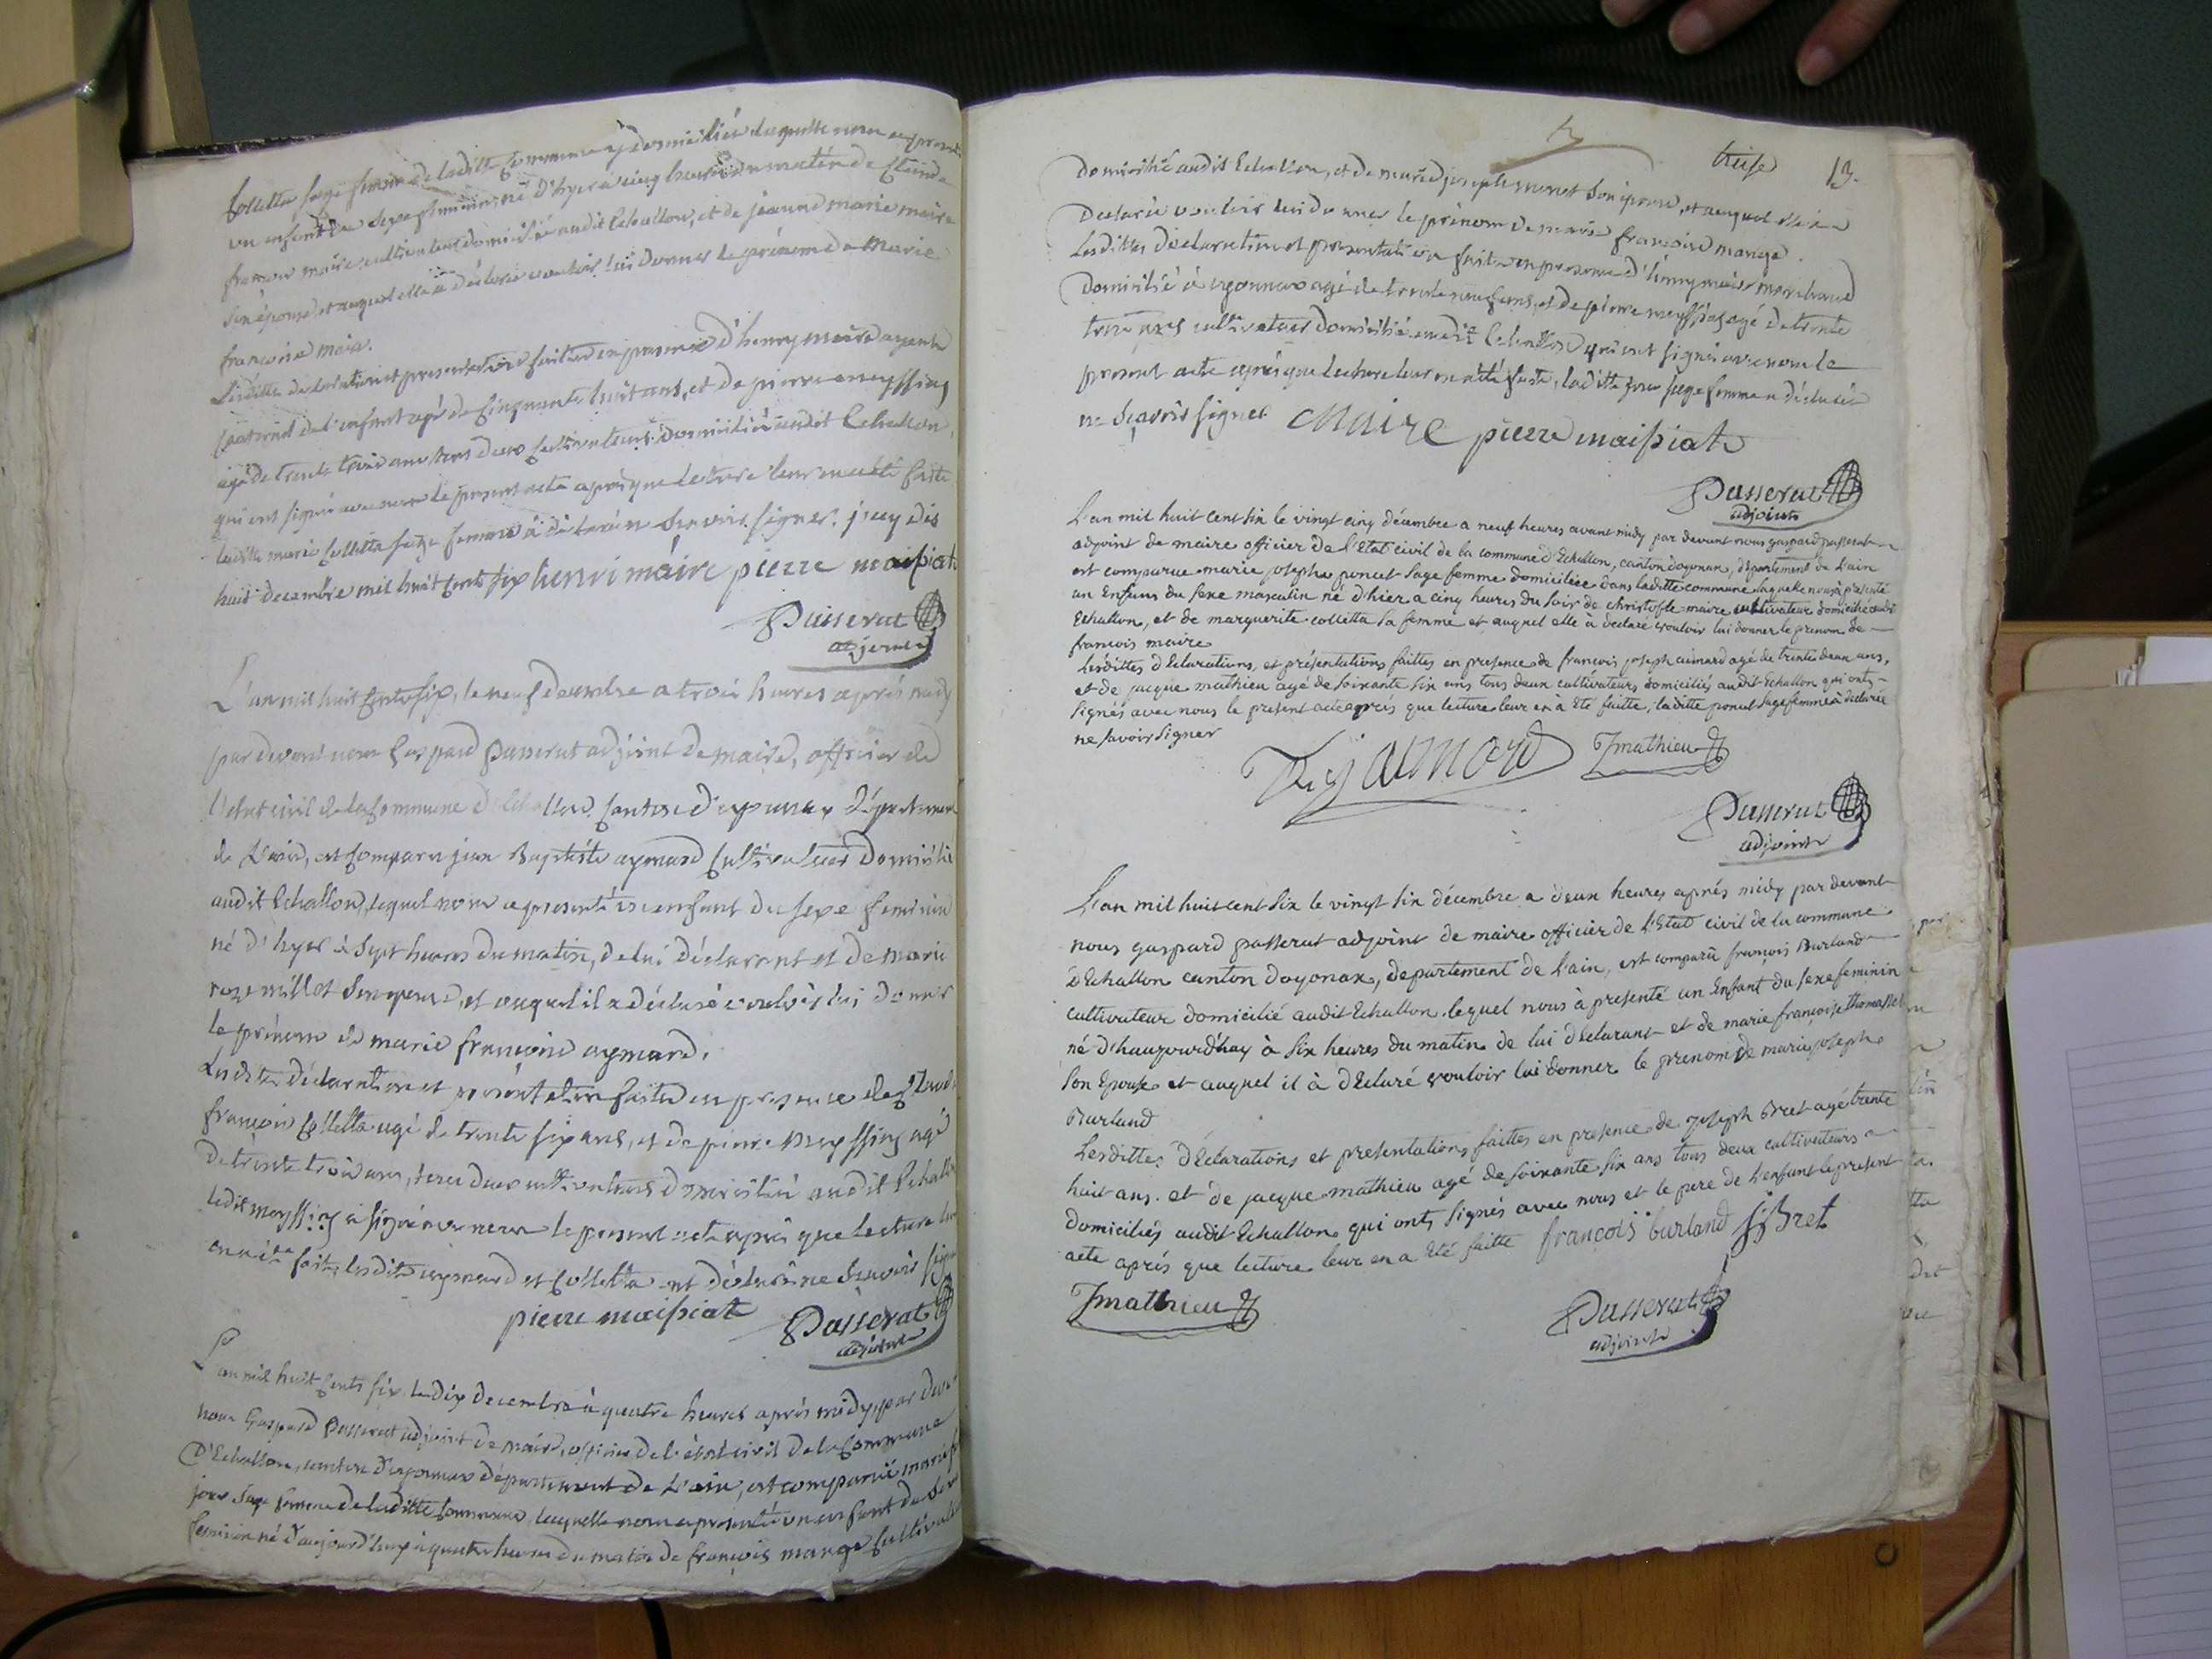 Colletta sage femme de laditte Commune y domiciliée laquelle nous a presenté
un enfant du sexe feminin né d'hyer à cinq heures du matin de Claude
françois maire cultivateur domicilié audit Echallon, et de jeanne marie maire
son épouse, et auquel elle a déclaré vouloir lui donner le prénom de Marie
françoise maire.
Lesdittes declaration et presentation faittes en presence d'henry maire ayeul
paternel de l'enfant agé de Cinquante huit ans, et de pierre meyssiaz
agé de trente trois ans tous deux Cultivateurs domiciliés audit Echallon,
qui ont signé avec nous le present acte aprés que lecture leur en a été faite
laditte marie Colletta sage femme a déclaré ne scavoir signer.
huit decembre mil huit Cents six henri maire pierre maissiat
Passerat
adjoint
L'an mil huit Cents six, le neuf decembre a trois heures aprés midy
par devant nous Gaspard Passerat adjoint de maire, officier de
l'état civil de la Commune d'Echallon Canton d'oyonnax Département
de L'ain, est Comparu jean Baptiste aymard Cultivateur Domicilié
audit Echallon, lequel nous a presenté un enfant du sexe feminin
né d'hyer à Sept heures du matin, de lui Déclarant et de marie
roze millet Son epouse, et auquel il a déclaré vouloir lui donner
le prénom de marie françoise aymard.
Lesdites déclaration et présentation faites en presence de Claude
françois Colletta agé de trente six ans, et de pierre meyssiaz agé
de trente trois ans, tous deux cultivateurs domiciliés audit Echallon
ledit meyssiaz a signé avec nous le present acte aprés que lecture leur
en a été faite, lesdits aymard et Colletta ont déclaré ne Scavoir signer
pierre maissiat Passerat
adjoint
L'an mil huit Cents six, le dix decembre à quatre heures aprés midy, par devant
nous Gaspard Passerat adjoint de maire, officier de l'état civil de la Commune
D'Echallon, canton d'oyonnax département de L'ain, est comparue marie
sage femme de laditte Commune, laquelle nous a presenté un enfant du sexe
feminin né d'aujourd'huy à quatre heures du matin de françois mange Cultivateur
treise 13.
Domicilié audit Echallon, et de marie josephe monet Son épouse, et auquel elle a
Declaré vouloir lui donner le prénom de marie françoise mange.
Lesdittes déclaration et presentation faites en presence d'henry maire marchand
Domicilié à oyonnax agé de trente neuf ans, et de pierre meyssiaz agé de trente
trois ans cultivateur domicilié audit Echallon qui ont signé avec nous le
present acte aprés que lecture leur en a été faite, laditte sage femme a déclaré
ne Scavoir signer Maire pierre maissiat
Passerat
adjoint
L'an mil huit cent six le vingt cinq décembre a neuf heures avant midy par devant nous gaspard passerat
adjoint de maire officier de l'Etat civil de la commune d'Echallon, canton d'oyonax, département de L'ain
est comparue marie josephe poncet sage femme domiciliée dans laditte commune laquelle nous à présenté
un Enfans du sexe masculin né d'hier a cinq heures du soir de christofle maire cultivateur domicilié audit
Echallon, et de marguerite colletta sa femme et auquel elle à declaré vouloir lui donner le prenom de
francois maire
Lesdittes déclarations, et présentations faittes en presence de francois joseph aimard agé de trente deux ans,
et de jacque mathieu agé de soixante six ans tous deux cultivateurs domiciliés audit Echallon qui onts
signés avec nous le present acte aprés que lecture leur en à été faitte, laditte poncet sage femme à déclarée
ne savoir signer
aimard Jmathieu
Passerat
adjoint
L'an mil huit cent six le vingt six décembre a deux heures aprés midy par devant
nous gaspard passerat adjoint de maire officier de l'Etat civil de la commune
d'Echallon canton d'oyonax, departement de L'ain, est comparu françois Burland
cultivateur domicilié audit Echallon lequel nous à presenté un Enfant du sexe feminin
né d'haujourd'huy à six heures du matin de lui déclarant et de marie françoise thomasset
son Epouse et auquel il à déclaré vouloir lui donner le prenom de marie josephe
Burland
Lesdittes déclarations et presentations faittes en presence de joseph Bret agé trente
huit ans. et de jacque mathieu agé de soixante six ans tous deux cultivateurs
domiciliés audit Echallon qui onts signés avec nous et le pere de l'enfant le present
acte aprés que lecture leur en a été faitte françois burland Bret
Jmathieu
Passerat
adjoint